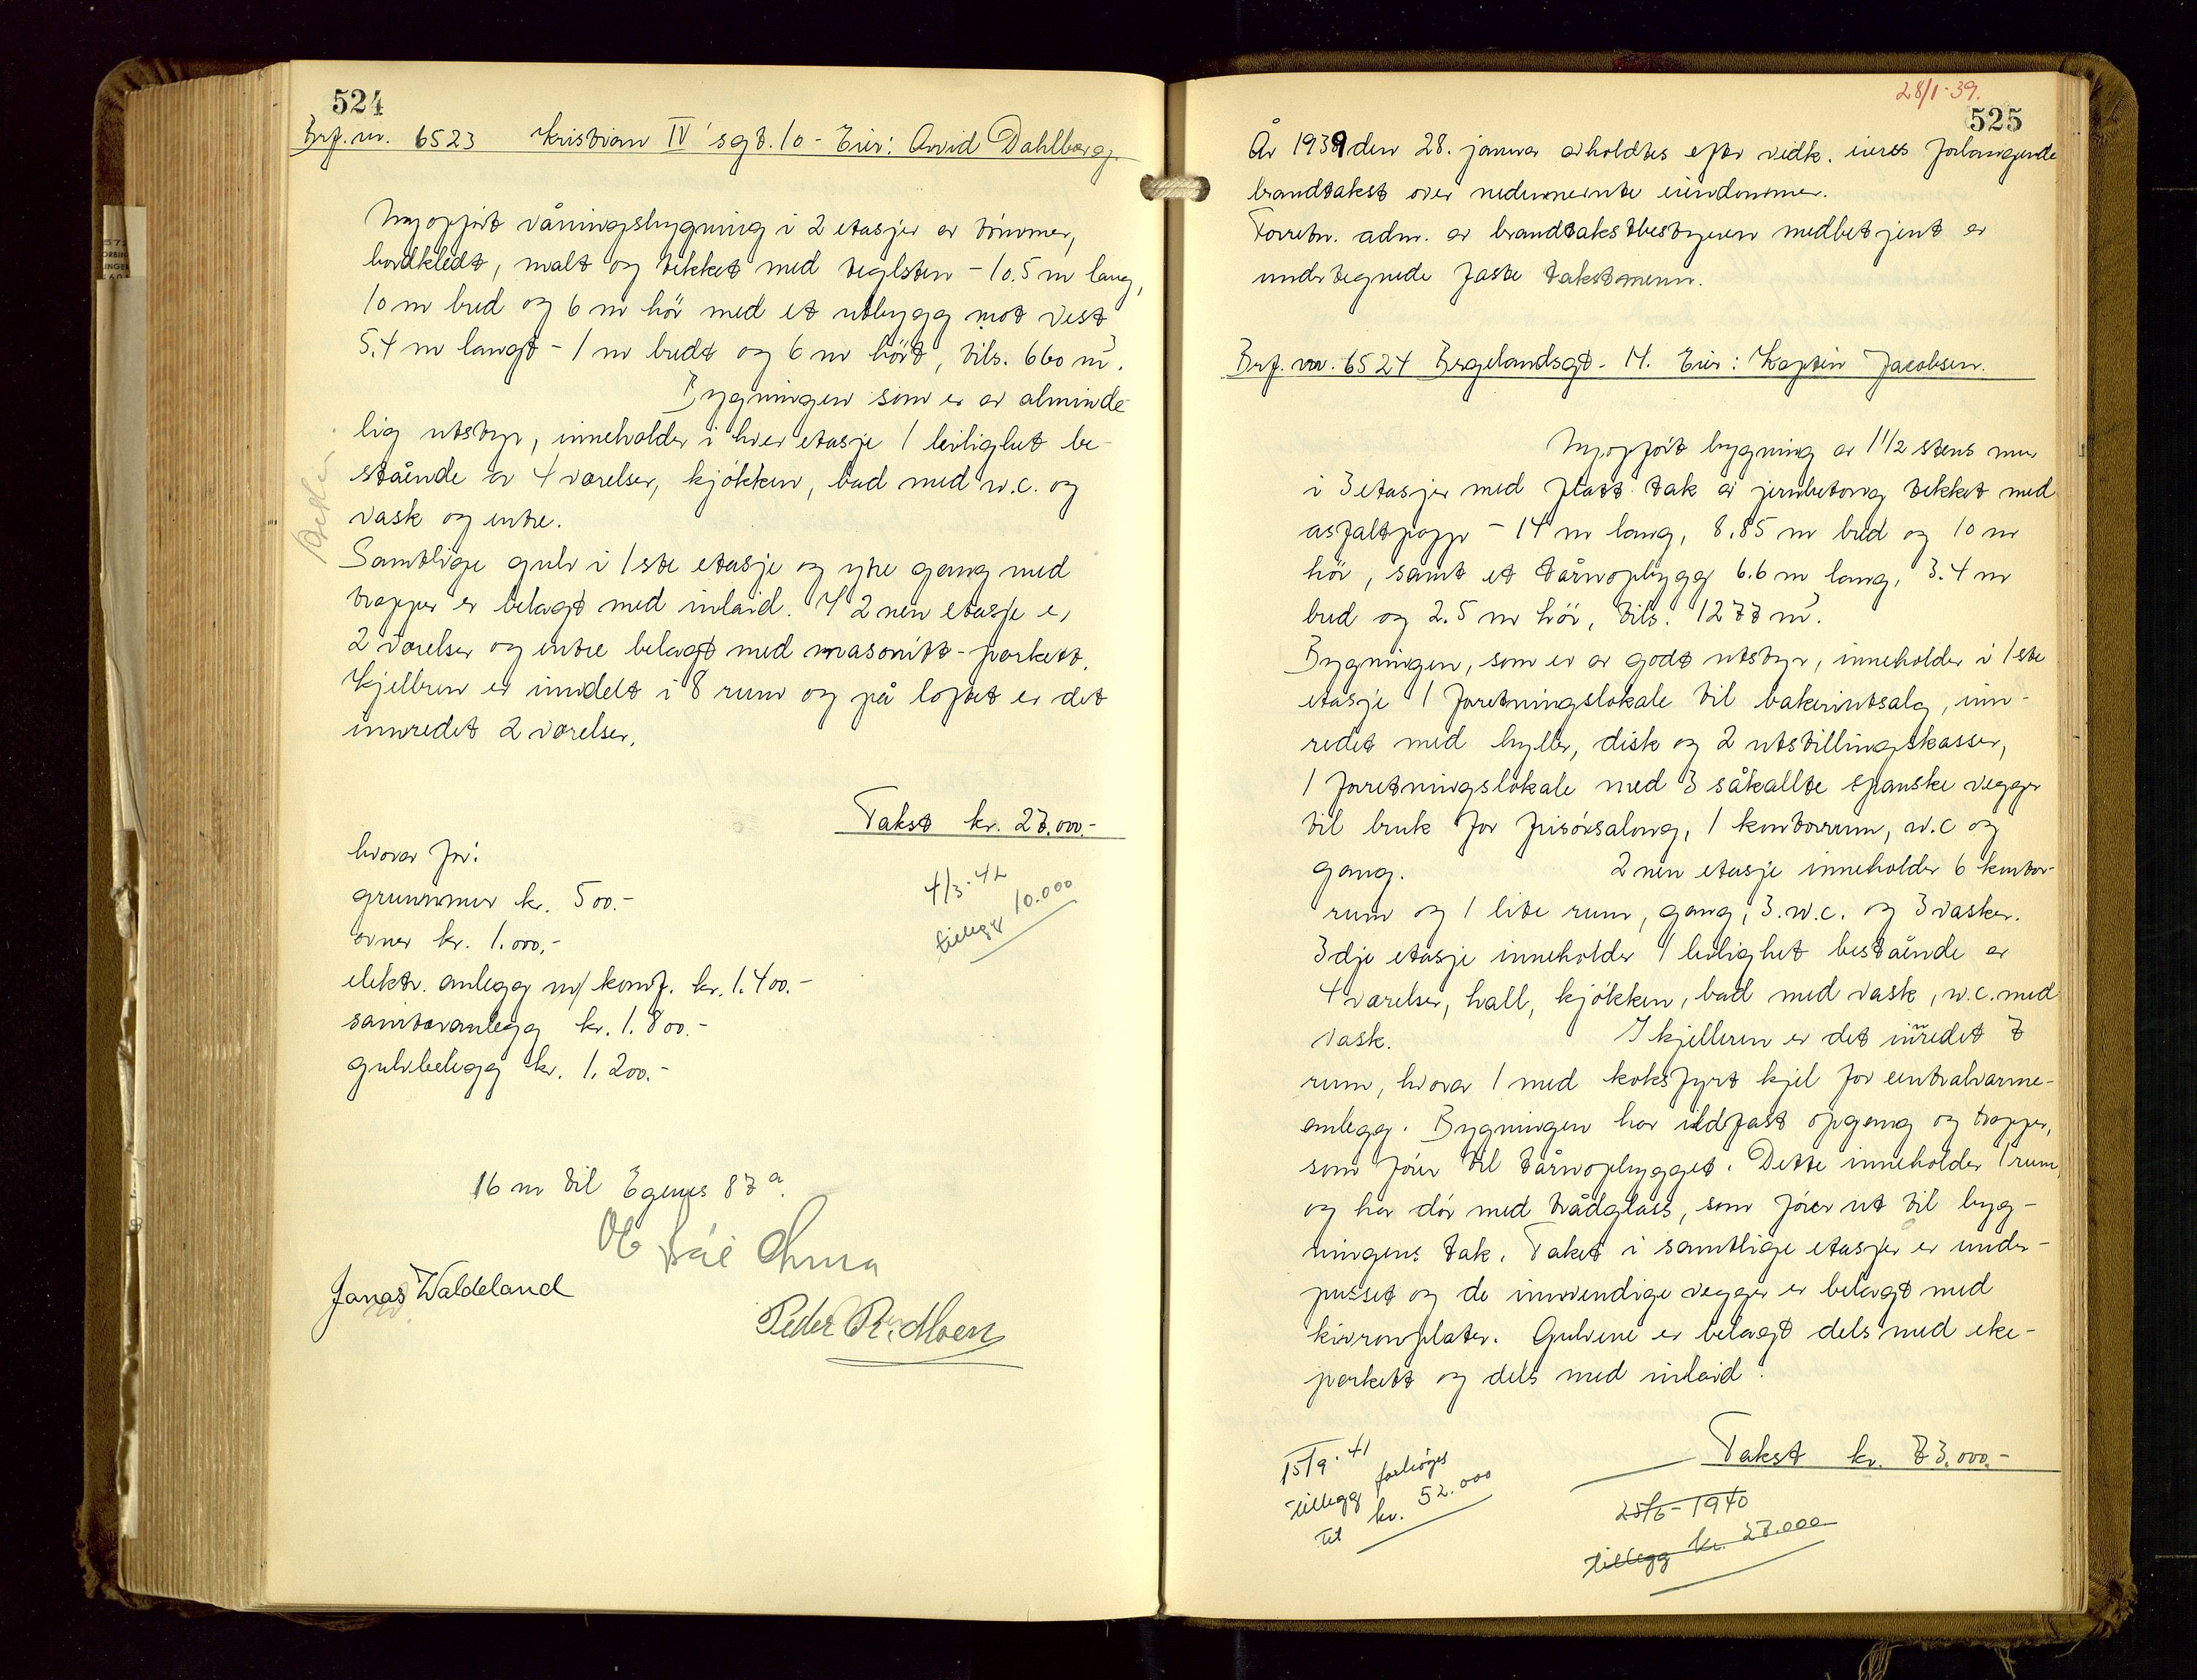 524
Brf. nr. 6523 Kristian IV'sgt. 10 - Eier: Arvid Dahlberg.
Nyopført våningsbygning i 2 etasjer av tømmer,
bordkledt, malt og tekket med teglsten - 10.5 m lang,
10 m bred og 6 m høi med et utbygg mot vest
5.4 m langt - 1 m bredt og 6 m høit, tils. 660 m³.
Bygningen som er av alminde-
lig utstyr, inneholder i hver etasje 1 leilighet be-
stående av 4 værelser, kjøkken, bad med w.c. og
vask og entre.
Samtlige gulv i 1ste etasje og ytre gang med
trapper er belagt med inlaid. I 2nen etasje er
2 værelser og entre belagt med masonitt-parkett.
Kjelleren er inndelt i 8 rum og på loftet er det
innredet 2 værelser.
Takst kr. 27.000.-
hvorav for:
grunnmur kr. 500.-
ovner kr. 1.000.-
elektr. anlegg m/ komf. kr. 1.400.-
sanitæranlegg kr. 1.800.-
gulvbelegg kr. 1.200.-
4/3-42
tillegg 10.000
16 m til Egenes 87 a.
Jonas Waldeland
28/1-39.
525
År 1939 den 28. januar avholdtes efter vedk. eieres forlangende
brandtakst over nedennevnte eiendommer.
Forretn. adm. av brandtakstbestyreren medbetjent av
undertegnede faste takstmenn.
Brf. nr. 6524 Bergelandsgt. 14. Eier: Kaptein Jacobsen.
Nyopført bygning av 1 1/2 stens mur
i 3 etasjer med flatt tak av jernbetong tekket med
asfaltpapp - 14 m lang, 8.85 m bred og 10 m
høi, samt et tårnopbygg 6.6 m lang, 3.4 m
bred og 2.5 m høi, tils. 1277 m³.
Bygningen, som er av godt utstyr, inneholder i 1ste
etasje 1 forretningslokale til bakeriutsalg, inn-
redet med hyller, disk og 2 utstillingskasser,
1 forretningslokale med 3 såkallte spanske vegger
til bruk for frisørsalong, 1 kontorrum, w.c og
gang. 2nen etasje inneholder 6 kontor-
rum og 1 lite rum, gang, 3 w.c. og 3 vasker.
3dje etasje inneholder 1 leilighet bestående av
4 værelser, hall, kjøkken, bad med vask, w.c. med
vask. I kjelleren er det innredet 7
rum, hvorav 1 med koksfyrt kjel for centralvarme-
anlegg. Bygningen har ildfast opgang og trapper,
som fører til tårnopbygget. Dette inneholder 1 rum,
og har dør med trådglass, som fører ut til byg-
ningens tak. Taket i samtlige etasjer er under-
pusset og de innvendige vegger er belagt med
kivronplater. Gulvene er belagt dels med eke-
parkett og dels med inlaid.
Takst kr. 73.000.-
15/9-41
tillegg forhøyes
til kr. 52.000
25/6-1940
tillegg kr. 27.000